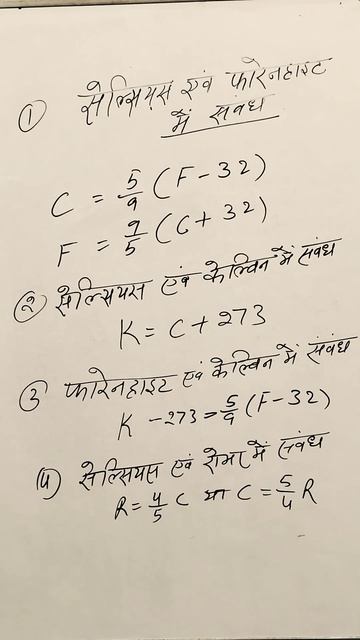 ① सेल्सियस एवं फारेनहाइट
में संबंध
C = 5/9 (F - 32)
F = 9/5 (C + 32)
② सेल्सियस एवं केल्विन में संबंध
K = C + 273
③ फारेनहाइट एवं केल्विन में संबंध
K - 273 = 5/9 (F - 32)
④ सेल्सियस एवं रोमर में संबंध
R = 4/5 C या C = 5/4 R